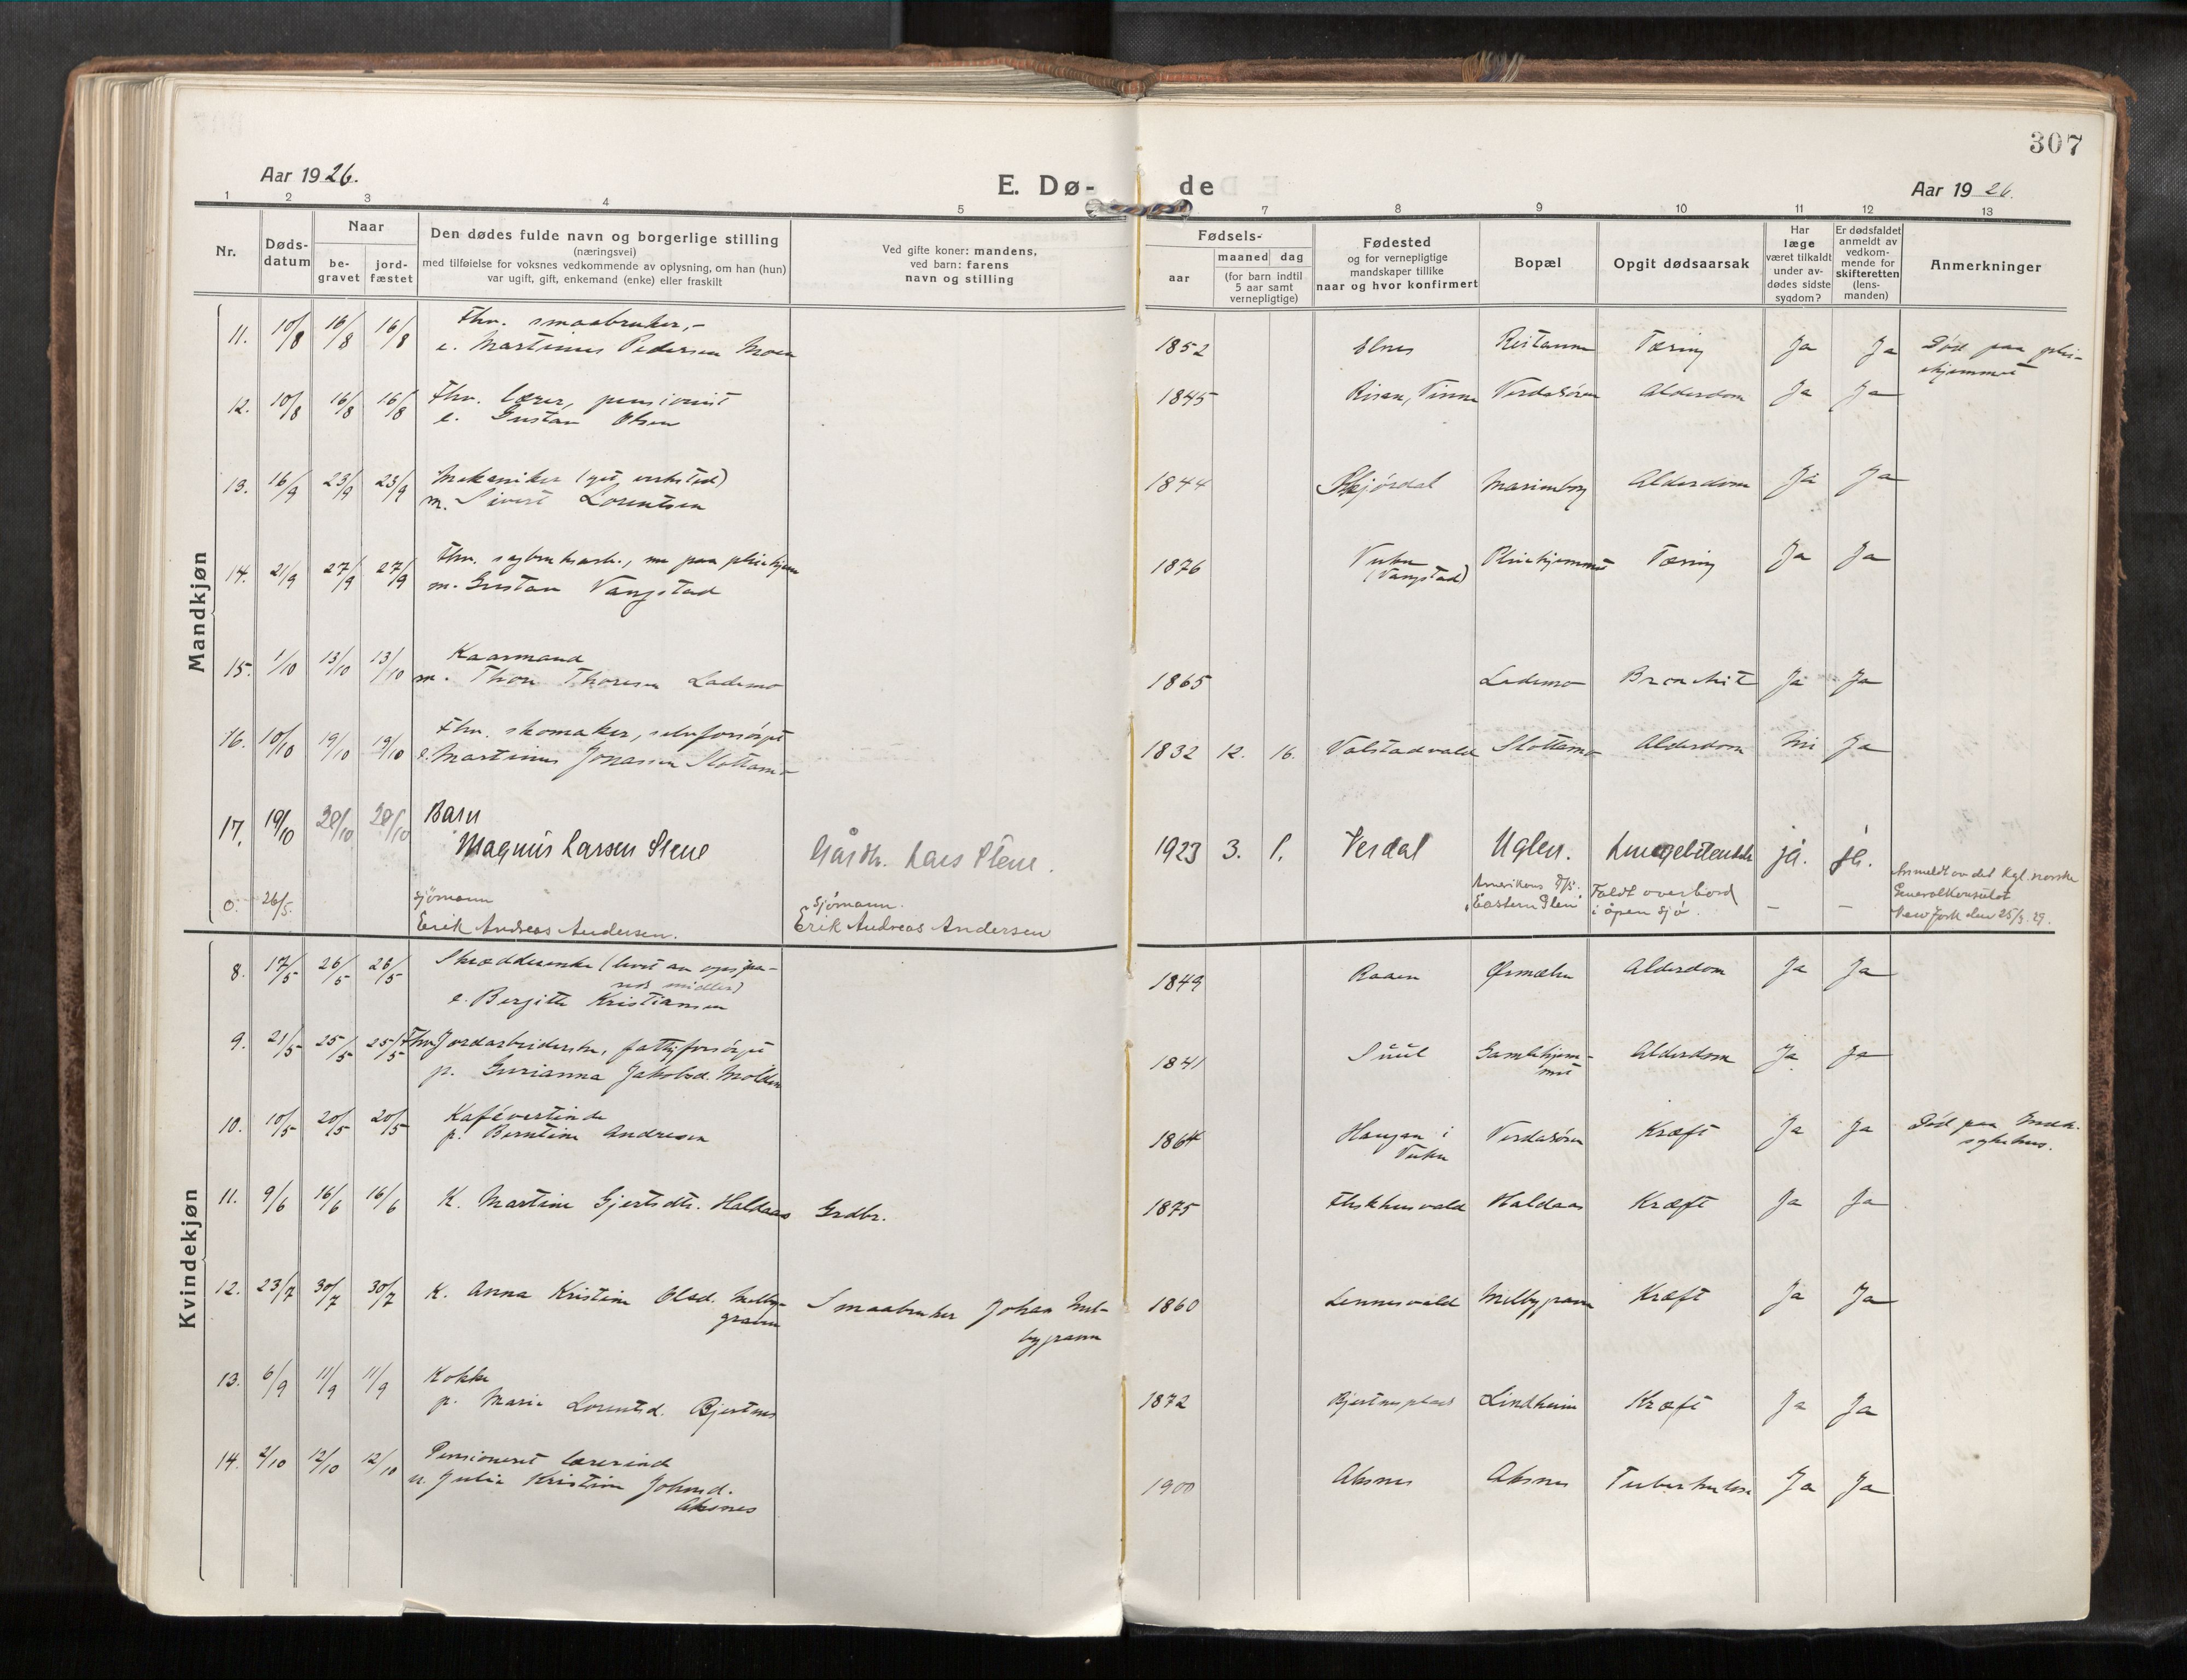 307
Aar 1926.
E. Dø-
de
Aar 1926.
1 2 3 4 5 7 8 9 10 11 12 13
Nr.
Døds-
datum
Naar
be-
gravet
jord-
fæstet
Den dødes fulde navn og borgerlige stilling
(næringsvei)
med tilføielse for voksnes vedkommende av oplysning, om han (hun)
var ugift, gift, enkemand (enke) eller fraskilt
Ved gifte koner: mandens,
ved barn: farens
navn og stilling
Fødsels-
aar
maaned dag
(for barn indtil
5 aar samt
vernepligtige)
Fødested
og for vernepligtige
mandskaper tillike
naar og hvor konfirmert
Bopæl
Opgit dødsaarsak
Har
læge
været tilkaldt
under av-
dødes sidste
sygdom?
Er dødsfaldet
anmeldt av
vedkom-
mende for
skifteretten
(lens-
manden)
Anmerkninger
Mandkjøn
11. 10/8 16/8 16/8 Fhv. smaabruker,-
e. Martinus Pedersen Moen
1852 Elnes Tæring Ja Ja Død paa plei-
ehjemmet
12. 10/8 16/8 16/8 Fhv. lærer, pensionist
e. Gustav Olsen
1845 Risan, Vinne Verdalsøren Alderdom Ja Ja
13. 16/9 23/9 23/9 Mekaniker
m. Sivert Lorentsen
1844 Skjørdal Marienborg Alderdom Ja Ja
14. 21/9 27/9 27/9 Fhv. sagbruksarb., nu paa pleiehjem
m. Gustav Vangstad
1876 Vuku
(Vangstad)
Pleiehjemmet Tæring Ja Ja
15. 1/10 13/10 13/10 Kaarmand
m. Thore Thoresen Lademo
1865 Lademo Bronchit Ja Ja
16. 10/10 19/10 19/10 Fhv. skomaker, selvforsørget
e. Martinus Jonassen Slottemo
1832 12. 16. Valstadvald Slottemo Alderdom Nei Ja
17. 19/10 28/10 28/10 Barn
Magnus Larsen Stene
Gårdbr. Lars Stene.
1923 3. 1. Verdal Uglen. Lungebetendelse ja. ja.
0. 26/5. Sjømann
Erik Andreas Andersen.
Sjømann.
Erik Andreas Andersen
Amerikans D/S.
"Eastern Glen"
Faldt overbord
i åpen sjø.
- -
Anmeldt av det Kgl. norske
Generalkonsulat
New York den 25/3. 29.
Kvindekjøn
8. 17/5 26/5 26/5 Skrædderenke (levet av opspa-
rede midler)
e. Bergitte Kristiansen
1849 Raaen Ørmælen Alderdom Ja Ja
9. 21/5 25/5 25/5 Fhv. Jordarbeiderske, fattigforsørget
p. Gurianna Jakobsd. Molden
1841 Suul Gamlehjem-
met
Alderdom Ja Ja
10. 10/5 20/5 20/5 Kafévertinde
p. Berntine Andresen
1864 Haugan i
Vuku
Verdalsøren Kræft Ja Ja Død paa Innh.
sykehus.
11. 9/6 16/6 16/6 K. Martine Gjertsdtr. Haldaas Grdbr.
1875 Flekkhusvald Haldaas Kræft Ja Ja
12. 23/7 30/7 30/7 K. Anna Kristine Olsd. Melby-
graven
Smaabruker Johan Mel-
bygraven
1860 Lennesvald Melbygraven Kræft Ja Ja
13. 6/9 11/9 11/9 Kokke
p. Marie Lorentsd. Bjertnes
1872 Bjertnesplads Lindheim Kræft Ja Ja
14. 2/10 12/10 12/10 Pensioneret lærerinde
u. Julie Kristine Johnsd.
Aksnes
1900 Aksnes Aksnes Tuberkulose Ja Ja